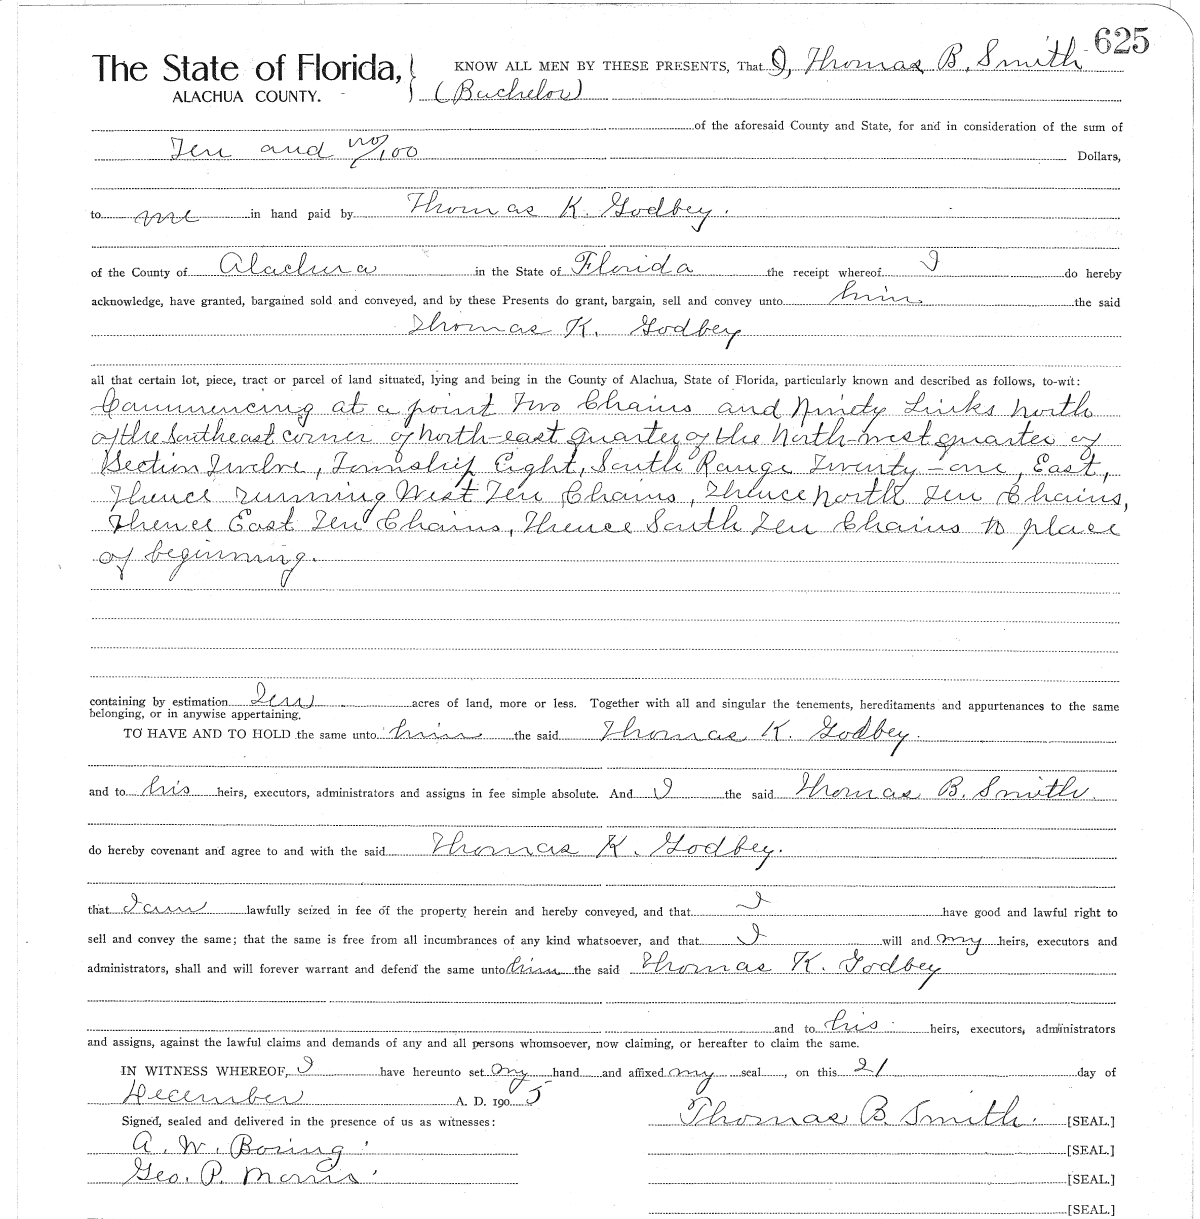 625
The State of Florida, } KNOW ALL MEN BY THESE PRESENTS, That I, Thomas B. Smith
ALACHUA COUNTY. (Bachelor)
of the aforesaid County and State, for and in consideration of the sum of
Ten and no/100 Dollars,
to me in hand paid by Thomas K. Godbey.
of the County of Alachua in the State of Florida the receipt whereof I do hereby
acknowledge, have granted, bargained sold and conveyed, and by these Presents do grant, bargain, sell and convey unto him the said
Thomas K. Godbey
all that certain lot, piece, tract or parcel of land situated, lying and being in the County of Alachua, State of Florida, particularly known and described as follows, to-wit:
Commencing at a point Two Chains and Ninety Links North
of the Southeast corner of North-east quarter of the North-west quarter of
Section Twelve, Township Eight, South Range Twenty-one, East,
Thence running West Ten Chains, Thence North Ten Chains,
Thence East Ten Chains, Thence South Ten Chains to place
of beginning.
containing by estimation Ten acres of land, more or less. Together with all and singular the tenements, hereditaments and appurtenances to the same
belonging, or in anywise appertaining.
TO HAVE AND TO HOLD the same unto him the said Thomas K. Godbey.
and to his heirs, executors, administrators and assigns in fee simple absolute. And I the said Thomas B. Smith
do hereby covenant and agree to and with the said Thomas K. Godbey.
that I am lawfully seized in fee of the property herein and hereby conveyed, and that I have good and lawful right to
sell and convey the same; that the same is free from all incumbrances of any kind whatsoever, and that I will and my heirs, executors and
administrators, shall and will forever warrant and defend the same unto him the said Thomas K. Godbey
and to his heirs, executors, administrators
and assigns, against the lawful claims and demands of any and all persons whomsoever, now claiming, or hereafter to claim the same.
IN WITNESS WHEREOF, I have hereunto set my hand and affixed my seal, on this 21 day of
December A. D. 1905
Signed, sealed and delivered in the presence of us as witnesses: Thomas B. Smith. [SEAL.]
A. W. Boring [SEAL.]
Geo. P. Morris [SEAL.]
[SEAL.]